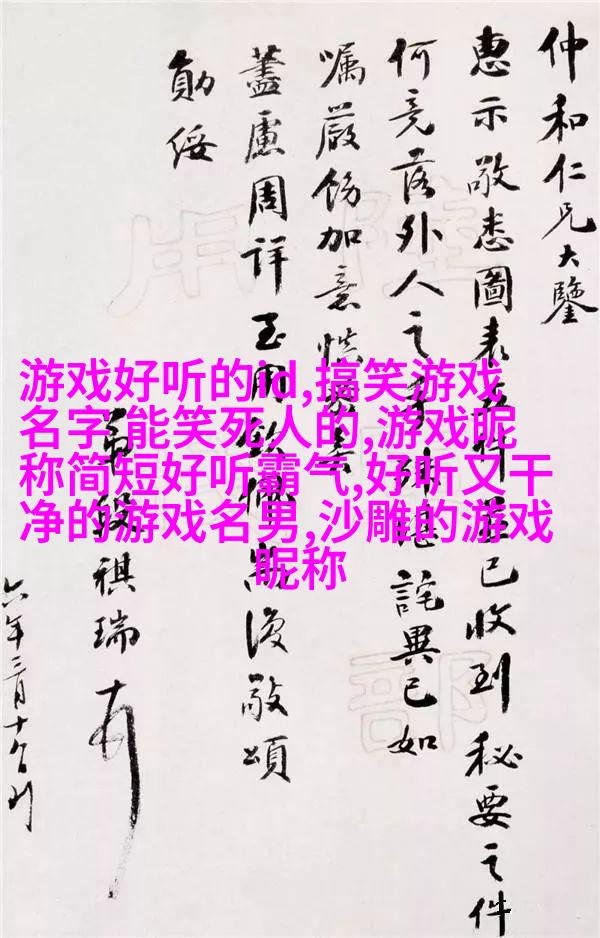 仲和仁兄大鑒
惠示敬悉圖表件已收到秘要之件
何竟落外人之手殊堪詫異已如
囑嚴飭加意慎密
藎慮周詳至用欽佩耑復敬頌
勛綏
弟段祺瑞
六年三月十
游戏好听的id,搞笑游戏
名字 能笑死人的,游戏昵
称简短好听霸气,好听又干
净的游戏名男,沙雕的游戏
昵称